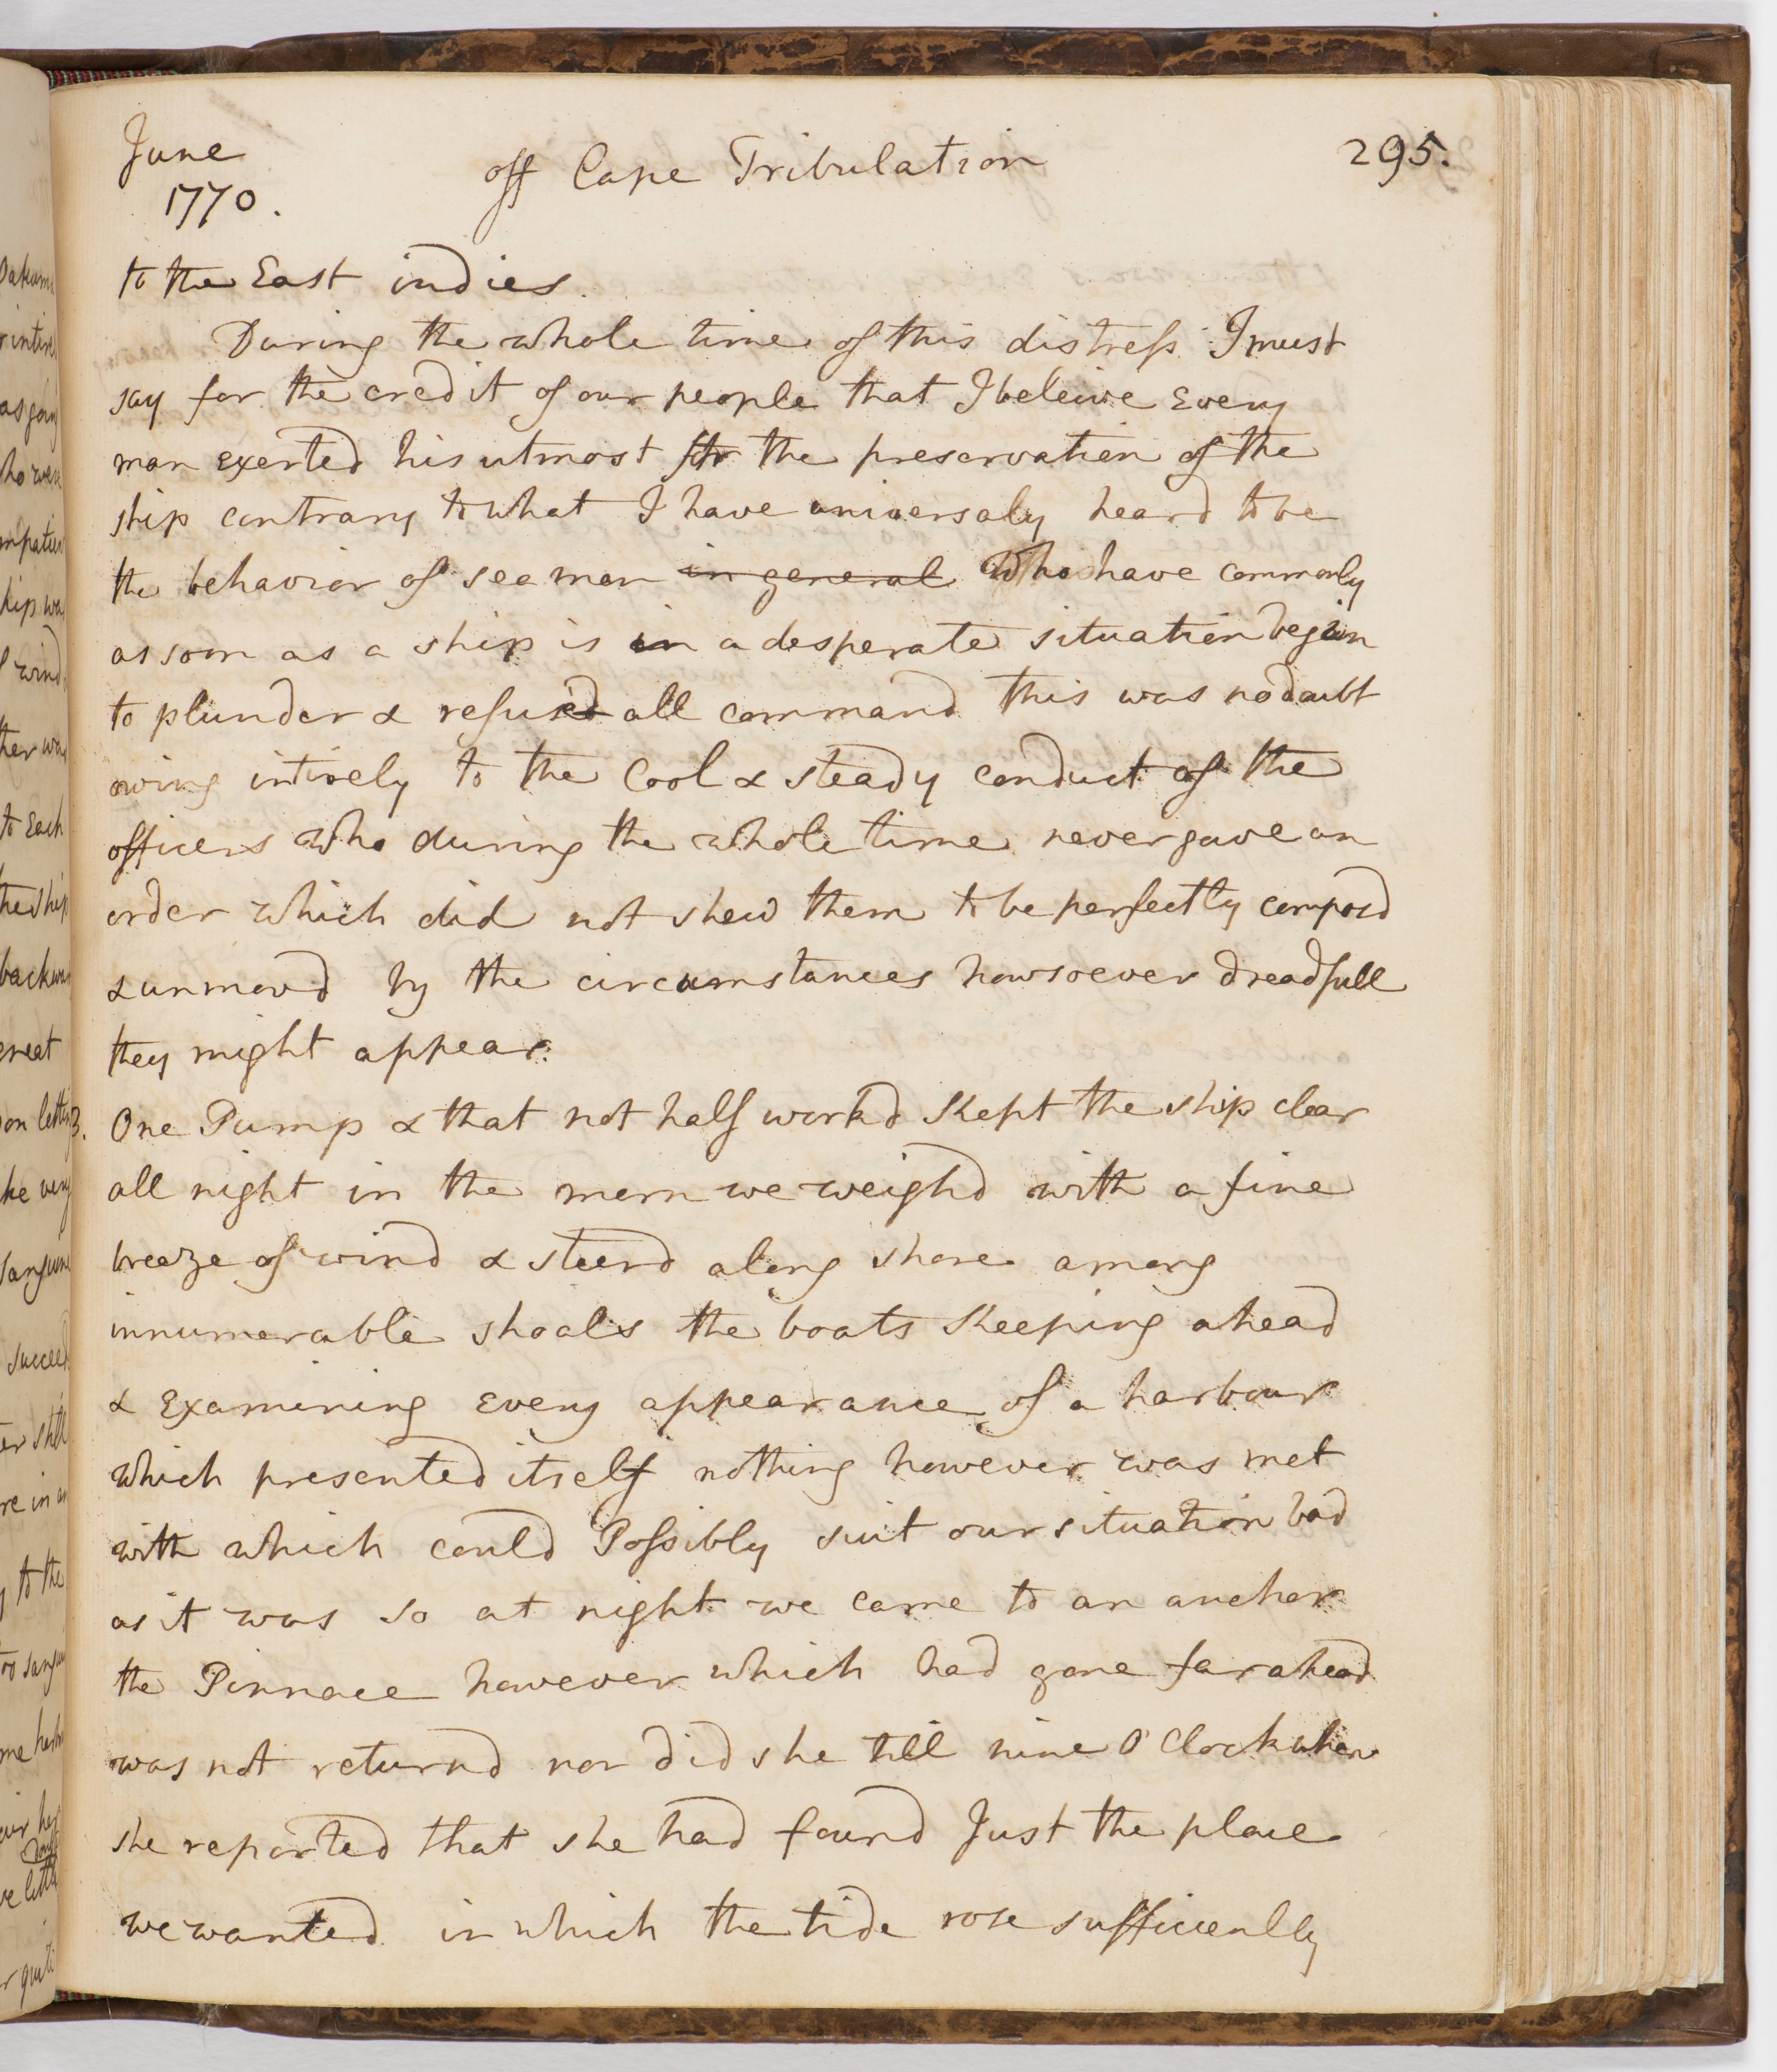 June
1770.
off Cape Tribulation
295.
to the East indies.
During the whole time of this distress I must
say for the credit of our people that I beleive Every
man exerted his utmost for the preservation of the
ship contrary to what I have universaly heard to be
the behavior of sea men in general Who have commonly
as soon as a ship is in a desperate situation began
to plunder & refused all command this was no doubt
owing intirely to the Cool & steady conduct of the
officers who during the whole time never gave an
order which did not shew them to be perfectly composd
& unmovd by the circumstances howsoever dreadfull
they might appear.
3. One Pump & that not half workd Kept the ship clear
all night in the morn we weighd with a fine
breeze of wind & steerd along shore among
innumerable shoals the boats Keeping ahead
& Examining Every appearance of a harbour
which presented itself nothing however was met
with which could Possibly suit our situation bad
as it was so at night we came to an anchor
the Pinnace however which had gone far ahead
was not returnd nor did she till nine O'Clock when
she reported that she had found Just the place
we wanted in which the tide rose sufficienlly